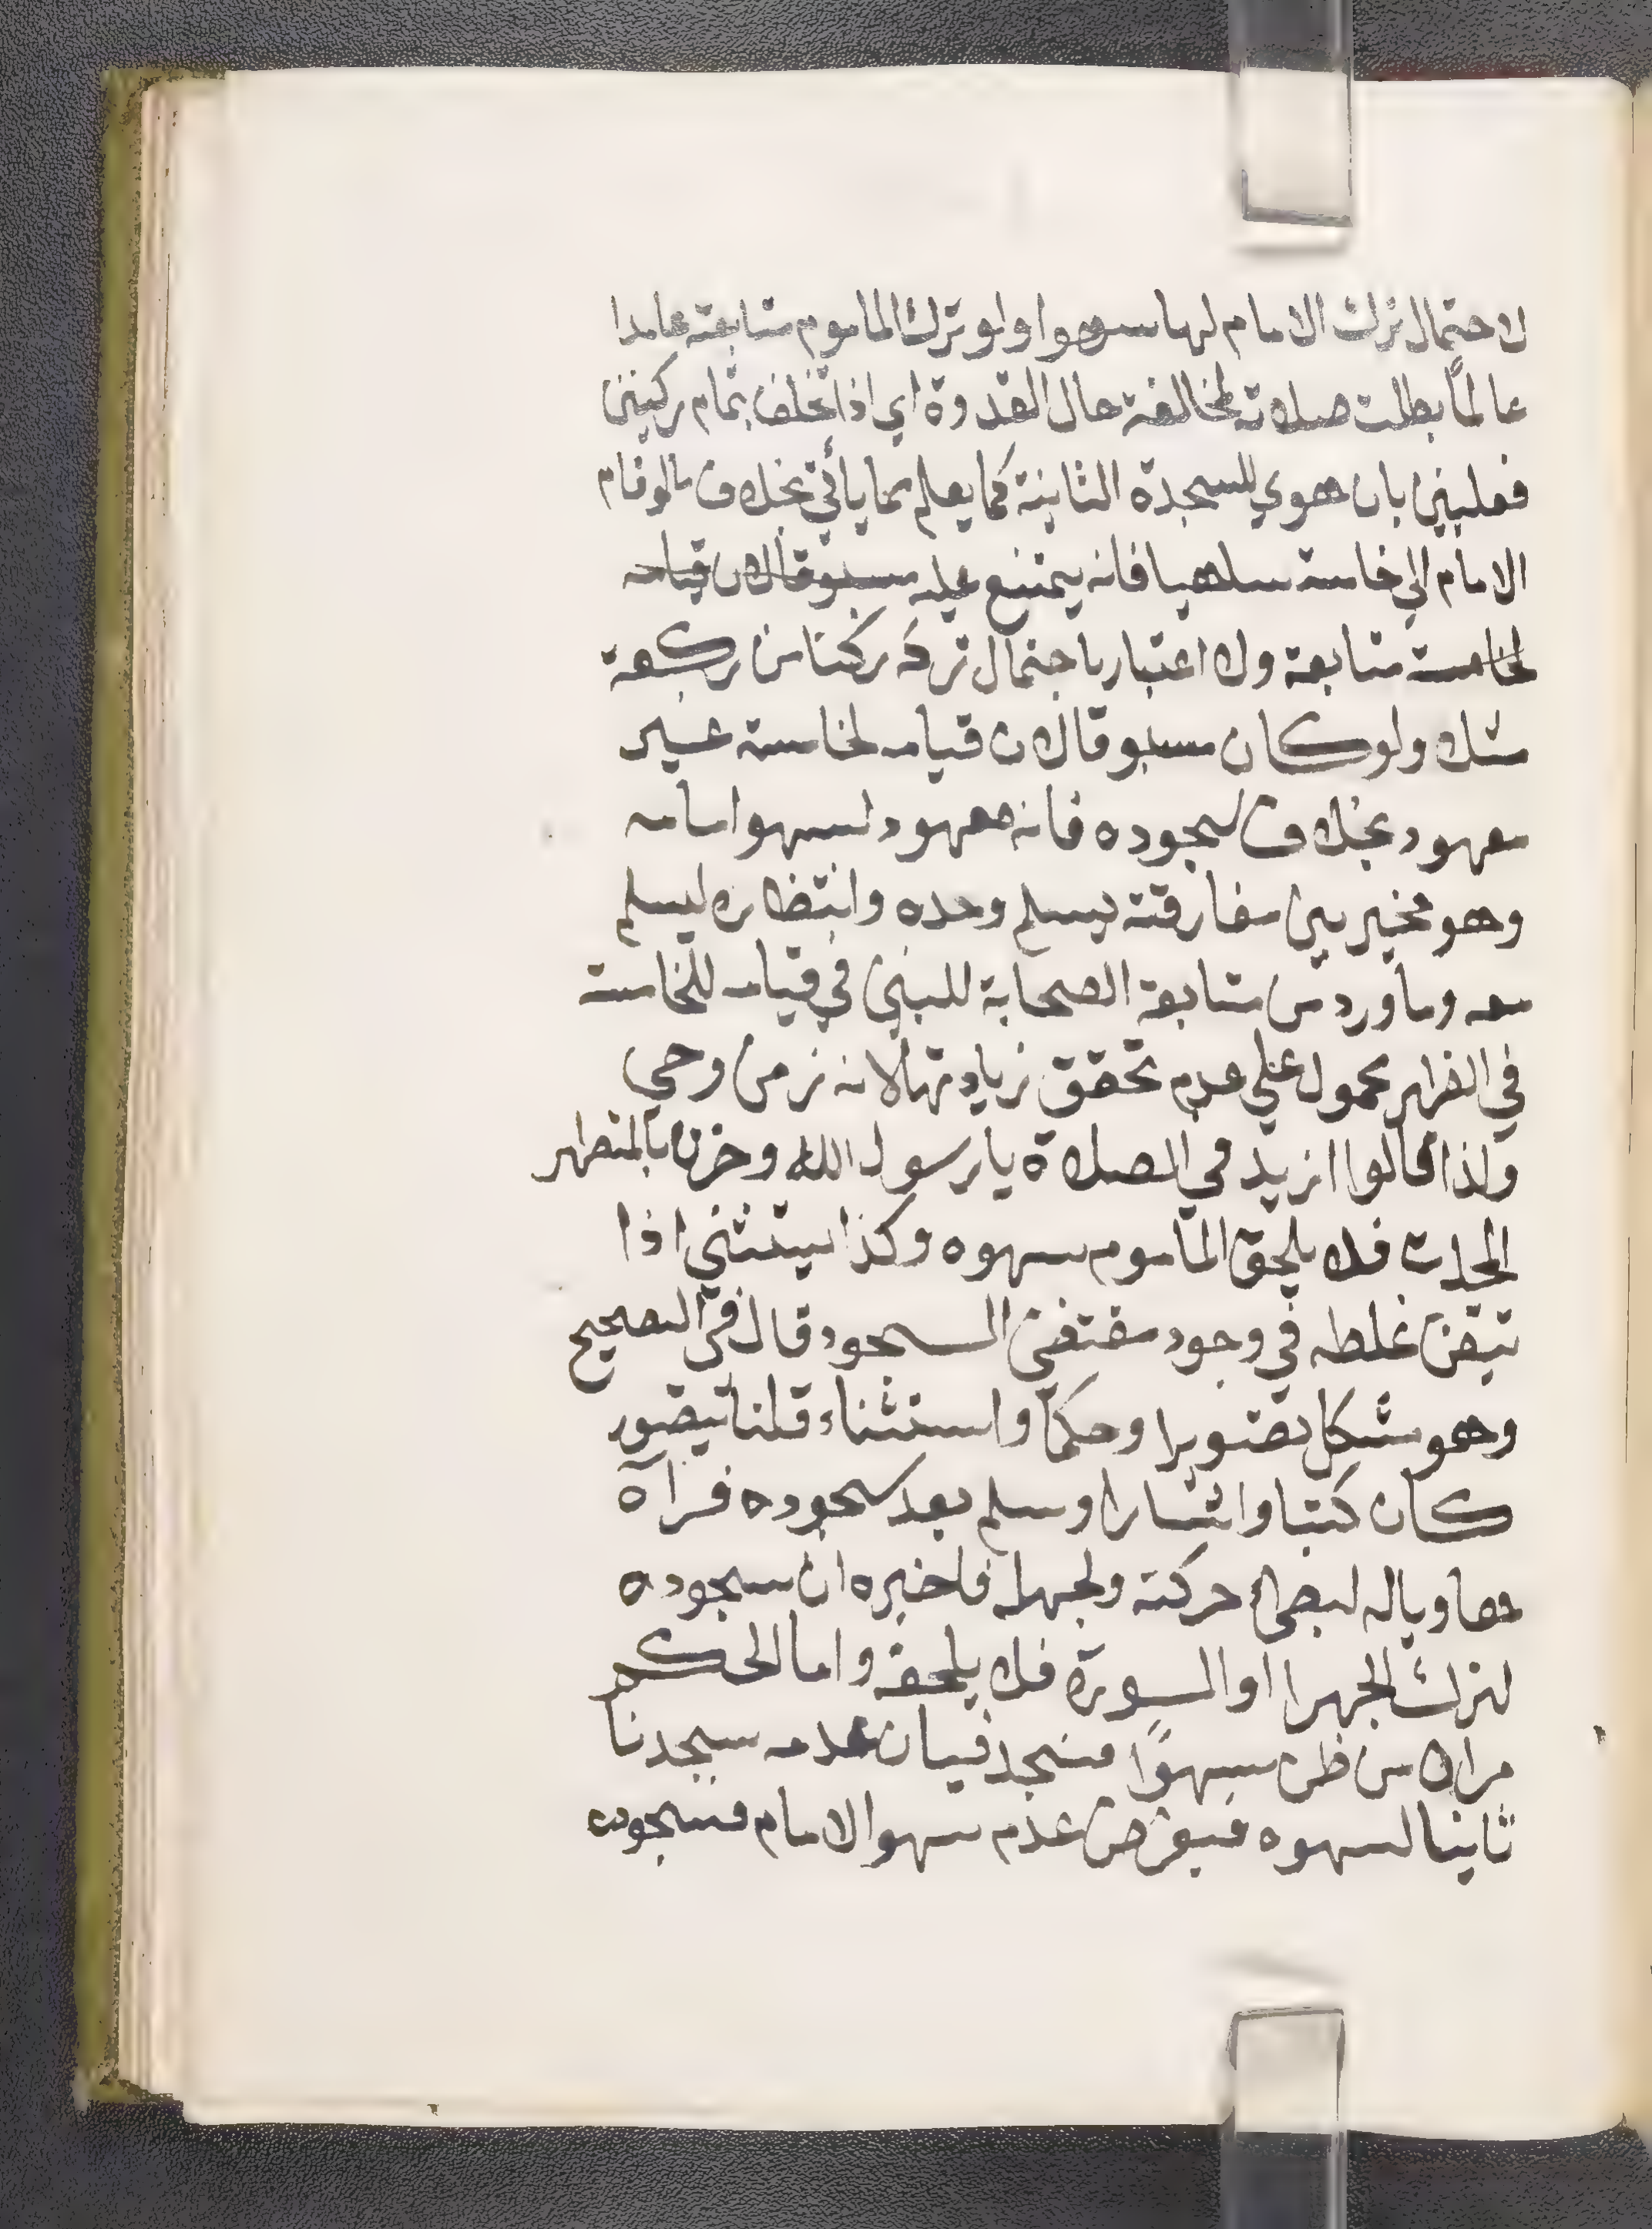 لاحتمال ترك الامام لها سهوا ولو ترك الماموم متابعته عامدا
عالماً بطلت صلاته لمخالفته حال القدوة اي اذا تخلف بتمام ركنين
فعليين بان هوي للسجدة الثانية كما يعلم مما يأتي بخلاف ما لو قام
الامام الي خامسة ساهيا فانه يمتنع عليه مسبوقا لان قيامه
لخامسة متابعة ولا اعتبار باحتمال تركه ركنا من ركعة
شك ولو كان مسبوقا لان قيامه لخامسة غير
معهود بخلاف سجوده فانه معهود لسهو امامه
وهو مخير بين مفارقته يسلم وحده وانتظاره ليسلم
معه وما ورد من متابعة الصحابة للنبي في قيامه للخامسة
في الظهر محمول علي عدم تحقق زيادتها لانه زمن وحي
ولذا قالوا ازيد في الصلاة يا رسول الله وخرج بالمتطهر
المحدث فلا يلحق الماموم سهوه وكذا يستثني اذا
تيقن غلطه في وجود مقتضي السجود قال في التصحيح
وهو مشكل تصويرا وحكماً واستثناء قلنا يتصور
كان كتب او اشار او سلم بعد سجوده فرآه
هاويا له لبطئ حركته ولجهله فاخبره ان سجوده
لترك الجهر او السورة فلا يلحقه واما الحكم
مراد من ظن سهوًا فسجد فبان عدمه سجد نا
ثانيا لسهوه فبفرض عدم سهو الامام فسجوده